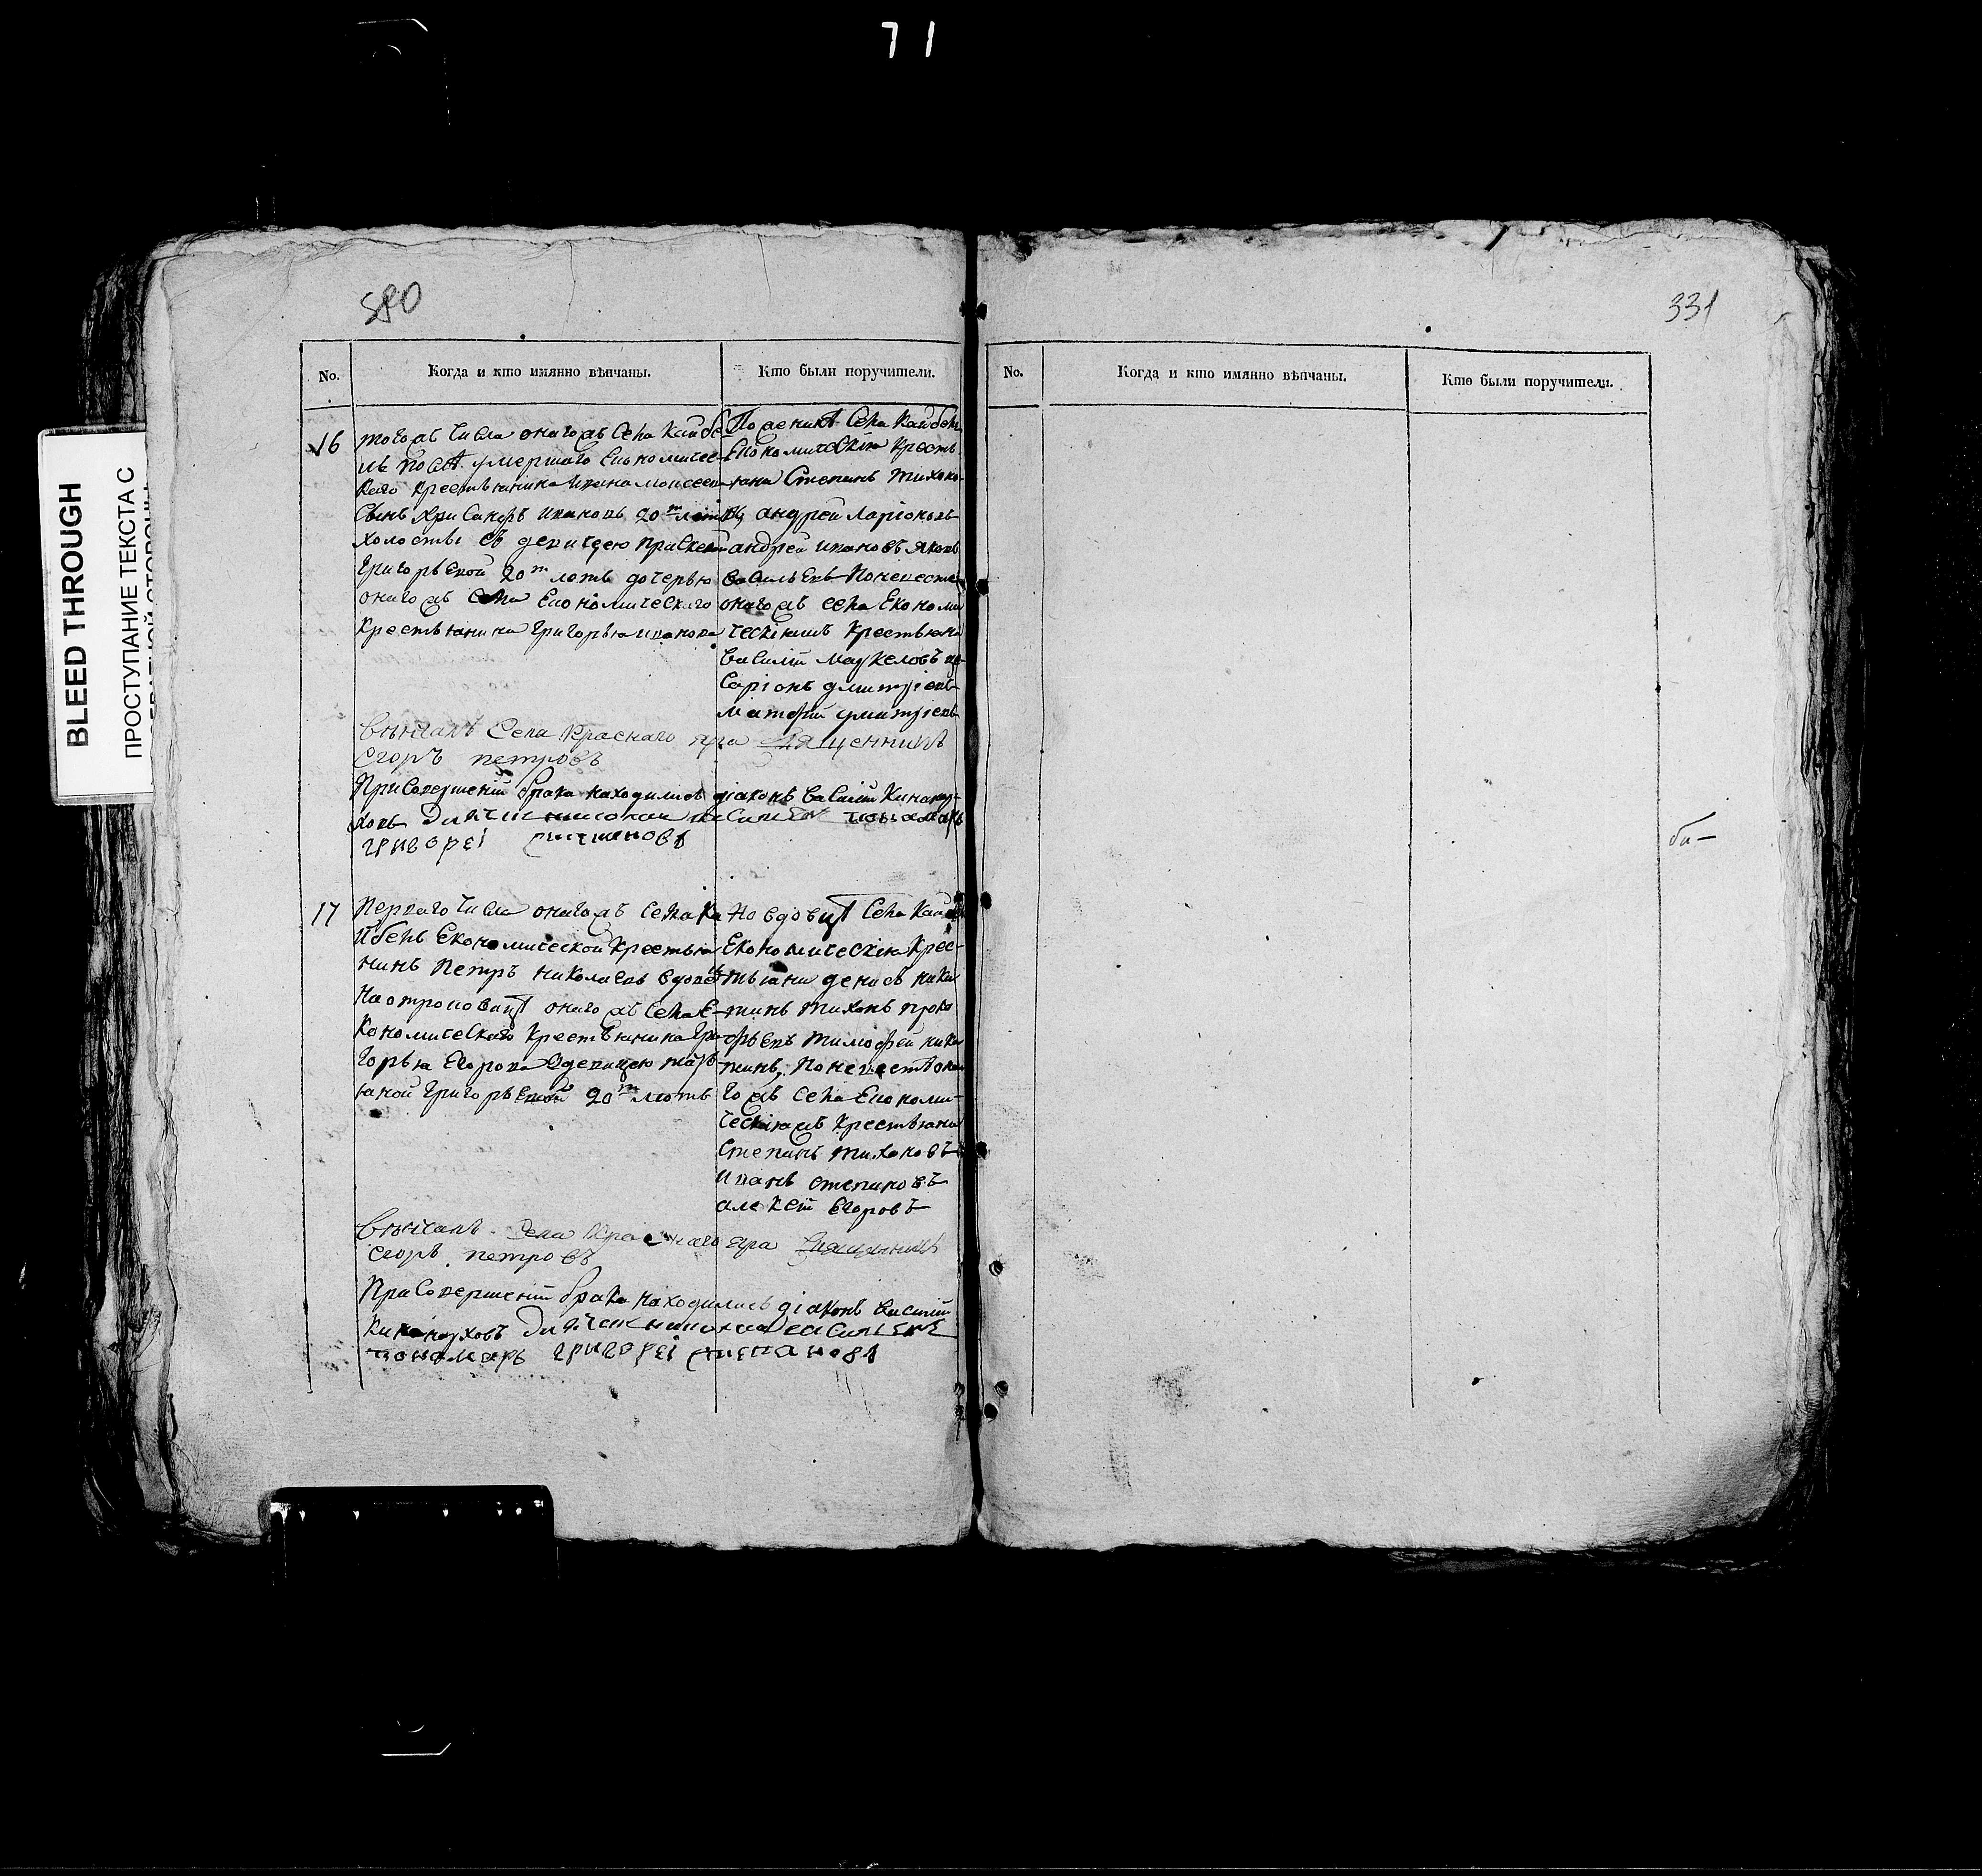 71
BLEED THROUGH
ПРОСТУПАНИЕ ТЕКСТА С
580
No.
Когда и кто имянно вѣнчаны.
Кто были поручители.
16
тогожъ числа оногожъ села Кайбе-
лъ послѣ умершаго Економичес-
каго крестьянина Ивана Моисеева
сынъ Ивановъ 20 т лѣтъ
холостъ съ девицею
Григорьевой 20 т лѣтъ дочерью
оногожъ села Економического
крестьянина Григорья Иванова
По женихѣ села Кайбелъ
Економическия кресть
яна Степанъ Тихоно
въ, Андрей Ларіоновъ
андрей ивановъ яковъ
васильевъ По невесте
оногожъ села Економи
ческіяжъ крестьяна
василій Маркеловъ
саріонъ дмитріевъ
матфей дмитріевъ
Вѣнчалъ Села Краснаго яра священникъ
егоръ петровъ
При совершеніи брака находились діаконъ василій
григореі степановъ
17
Перваго числа оногожъ села Ка
йбелъ Економической крестья
нинъ Петръ Николаевъ вдовецъ
оногожъ села Е-
кономическаго крестьянина Гри-
горья Егорова девицею
яной Григорьевой 20 т лѣтъ
По вдовцѣ села Кайбелъ
Економическія Крес-
тьяни денисъ ники
тинъ тихонъ проко
фьевъ тимофей ники
тинъ, По невестѣ оно
гожъ села Економи-
ческіяжъ крестьяна
Степанъ тихоновъ
иванъ степановъ
алексей Егоровъ
Вѣнчалъ Села Краснаго яра священникъ
егоръ петровъ
При совершеніи брака находились діаконъ василій
пономарь григореі степановъ
331
No.
Когда и кто имянно вѣнчаны.
Кто были поручители.